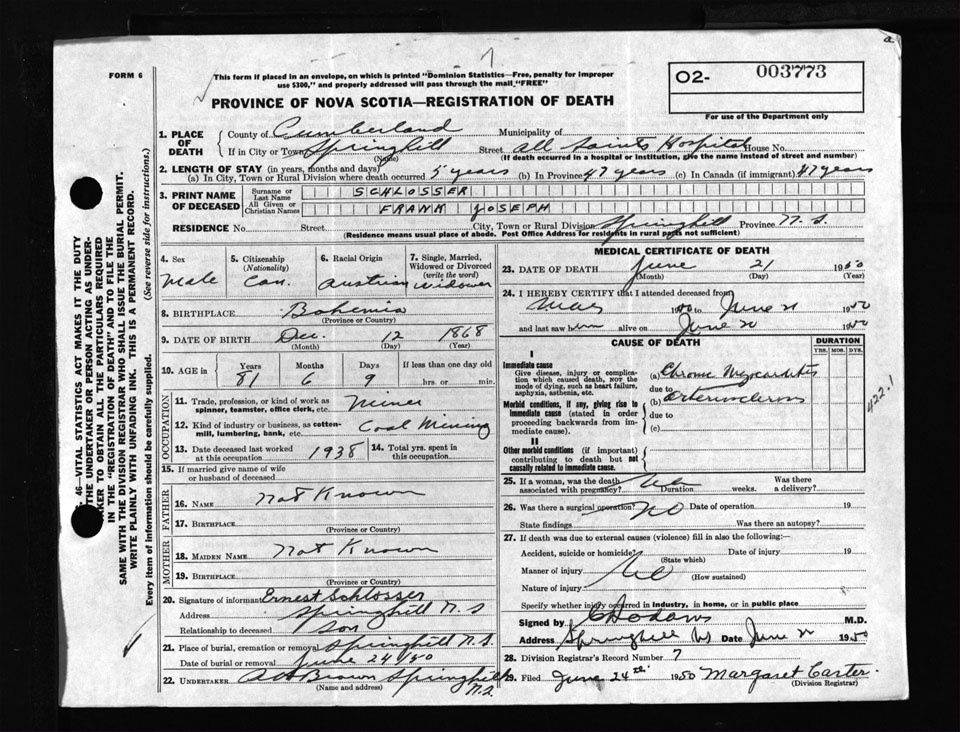 a
FORM 6
This form if placed in an envelope, on which is printed "Dominion Statistics—Free, penalty for improper
use $300," and properly addressed will pass through the mail "FREE"
O2- 003773
For use of the Department only
PROVINCE OF NOVA SCOTIA—REGISTRATION OF DEATH
1. PLACE OF DEATH
County of Cumberland Municipality of
If in City or Town Springhill Street All Saints Hospital House No.
(Name) (If death occurred in a hospital or institution, give the name instead of street and number)
2. LENGTH OF STAY (in years, months and days)
(a) In City, Town or Rural Division where death occurred 5 years (b) In Province 47 years (c) In Canada (if immigrant) 47 years
3. PRINT NAME OF DECEASED
Surname or Last Name SCHLOSSER
All Given or Christian Names FRANK JOSEPH
RESIDENCE No. Street City, Town or Rural Division Springhill Province N.S.
(Residence means usual place of abode. Post Office Address for residents in rural parts not sufficient)
4. Sex Male
5. Citizenship (Nationality) Can.
6. Racial Origin Austrian
7. Single, Married, Widowed or Divorced (write the word) Widower
8. BIRTHPLACE Bohemia
(Province or Country)
9. DATE OF BIRTH Dec. 12 1868
(Month) (Day) (Year)
10. AGE in Years Months Days If less than one day old
81 6 9 hrs. or min.
OCCUPATION
11. Trade, profession, or kind of work as spinner, teamster, office clerk, etc. Miner
12. Kind of industry or business, as cotton-mill, lumbering, bank, etc. Coal Mining
13. Date deceased last worked at this occupation 1938
14. Total yrs. spent in this occupation
15. If married give name of wife or husband of deceased
FATHER
16. NAME Not Known
17. BIRTHPLACE
(Province or Country)
MOTHER
18. MAIDEN NAME Not Known
19. BIRTHPLACE
(Province or Country)
20. Signature of informant Ernest Schlosser
Address Springhill N.S
Relationship to deceased Son
21. Place of burial, cremation or removal Springhill N.S.
Date of burial or removal June 24/50
22. UNDERTAKER Brown Springhill N.S.
(Name and address)
MEDICAL CERTIFICATE OF DEATH
23. DATE OF DEATH June 21 1950
(Month) (Day) (Year)
24. I HEREBY CERTIFY that I attended deceased from
1950 to June 21 1950
and last saw him alive on June 20 1950
CAUSE OF DEATH
DURATION
YRS. MOS. DYS.
I
Immediate cause
Give disease, injury or complication which caused death, NOT the mode of dying, such as heart failure, asphyxia, asthenia, etc.
(a) Chronic Myocarditis
due to
Morbid conditions, if any, giving rise to immediate cause (stated in order proceeding backwards from immediate cause).
(b) Arteriosclerosis
due to
(c)
422.1
II
Other morbid conditions (if important) contributing to death but not causally related to immediate cause.
25. If a woman, was the death associated with pregnancy? No Duration weeks. Was there a delivery?
26. Was there a surgical operation? No Date of operation 19
State findings Was there an autopsy?
27. If death was due to external causes (violence) fill in also the following:
Accident, suicide or homicide? Date of injury 19
(State which)
Manner of injury No
(How sustained)
Nature of injury
Specify whether injury occurred in industry, in home, or in public place
Signed by M.D.
Address Springhill NS Date June 21 1950
28. Division Registrar's Record Number 7
29. Filed June 24th 1950 Margaret Carter.
(Division Registrar)
46—VITAL STATISTICS ACT MAKES IT THE DUTY
THE UNDERTAKER OR PERSON ACTING AS UNDER-
TAKER TO OBTAIN ALL THE PARTICULARS REQUIRED
IN THE "REGISTRATION OF DEATH" AND TO FILE THE
SAME WITH THE DIVISION REGISTRAR WHO SHALL ISSUE THE BURIAL PERMIT.
WRITE PLAINLY WITH UNFADING INK. THIS IS A PERMANENT RECORD.
Every item of information should be carefully supplied. (See reverse side for instructions.)